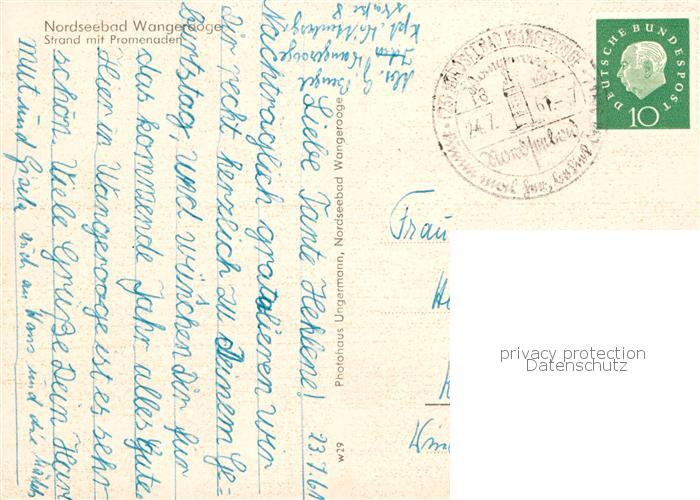 Nordseebad Wangerooge
Strand mit Promenaden
Abs. G.
Wangerooge
23.7.61
Liebe Tante Hehlene!
Nachträglich gratulieren wir
Dir recht herzlich zu Deinem Ge-
burtstag, und wünschen Dir für
das kommende Jahr alles Gute.
Hier in Wangerooge ist es sehr
schön. Viele Grüße Dein Hart
mut und Gisela auch an Hans und die Mädels
Photohaus Ungermann, Nordseebad Wangerooge
w29
NORDSEEBAD WANGEROOGE
24.7. 61-7
18
DEUTSCHE BUNDESPOST
10
Frau
privacy protection
Datenschutz